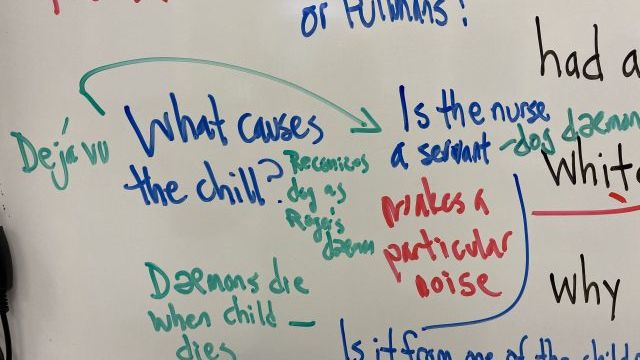 or Pullmans?
had a
Déjà vu
What causes
the chill?
Recognizes
dog as
Roger's
daemon
Is the nurse
a servant
-dog daemon
White
makes a
particular
noise
why
Daemons die
when child —
dies
Is it from one of the child